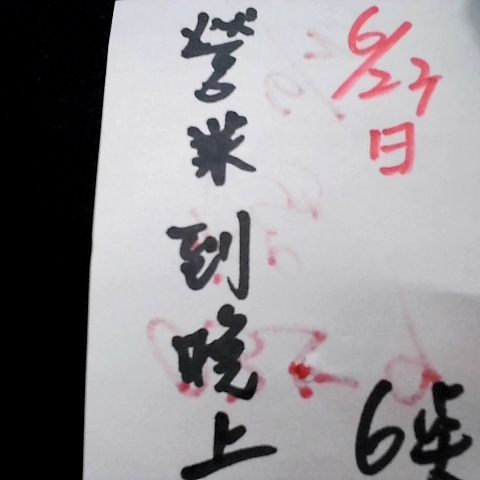 6/27日
營業到晚上
6点